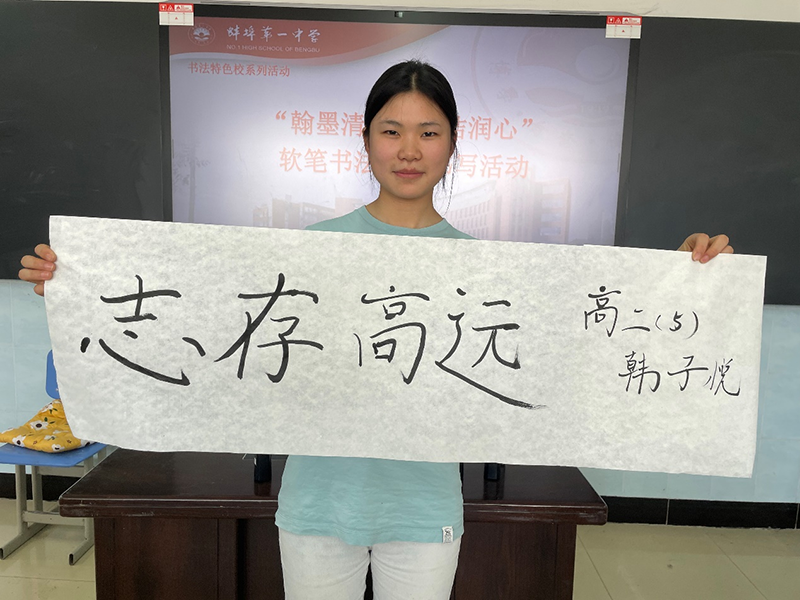 蚌埠第一中学
NO.1 HIGH SCHOOL OF BENGBU
书法特色校系列活动
“翰墨清 洁润心”
软笔书法 写活动
志存高远
高二(5)
韩子悦